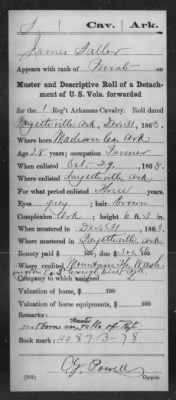 Cav. Ark.
James
Appears with rank of Private
Muster and Descriptive Roll of a Detach-
ment of U. S. Vols. forwarded
for the 1 Reg't Arkansas Cavalry. Roll dated
Fayetteville Ark, Dec 31, 1863.
Where born Madison Co. Ark
Age 28 years; occupation Farmer
When enlisted Oct. 29, 1863.
Where enlisted Fayetteville Ark
For what period enlisted Three years.
Eyes grey; hair brown
Complexion dark; height 6 ft. in.
When mustered in Dec 31, 1863.
Where mustered in Fayetteville Ark
Bounty paid $ 100; due $ 100
Where credited Mountain Wash
Company to which assigned
Valuation of horse, $ 100
Valuation of horse equipments, $ 100
Remarks:
not borne on rolls of
Book mark: 4089-B-78
Powell
(339) Copyist.